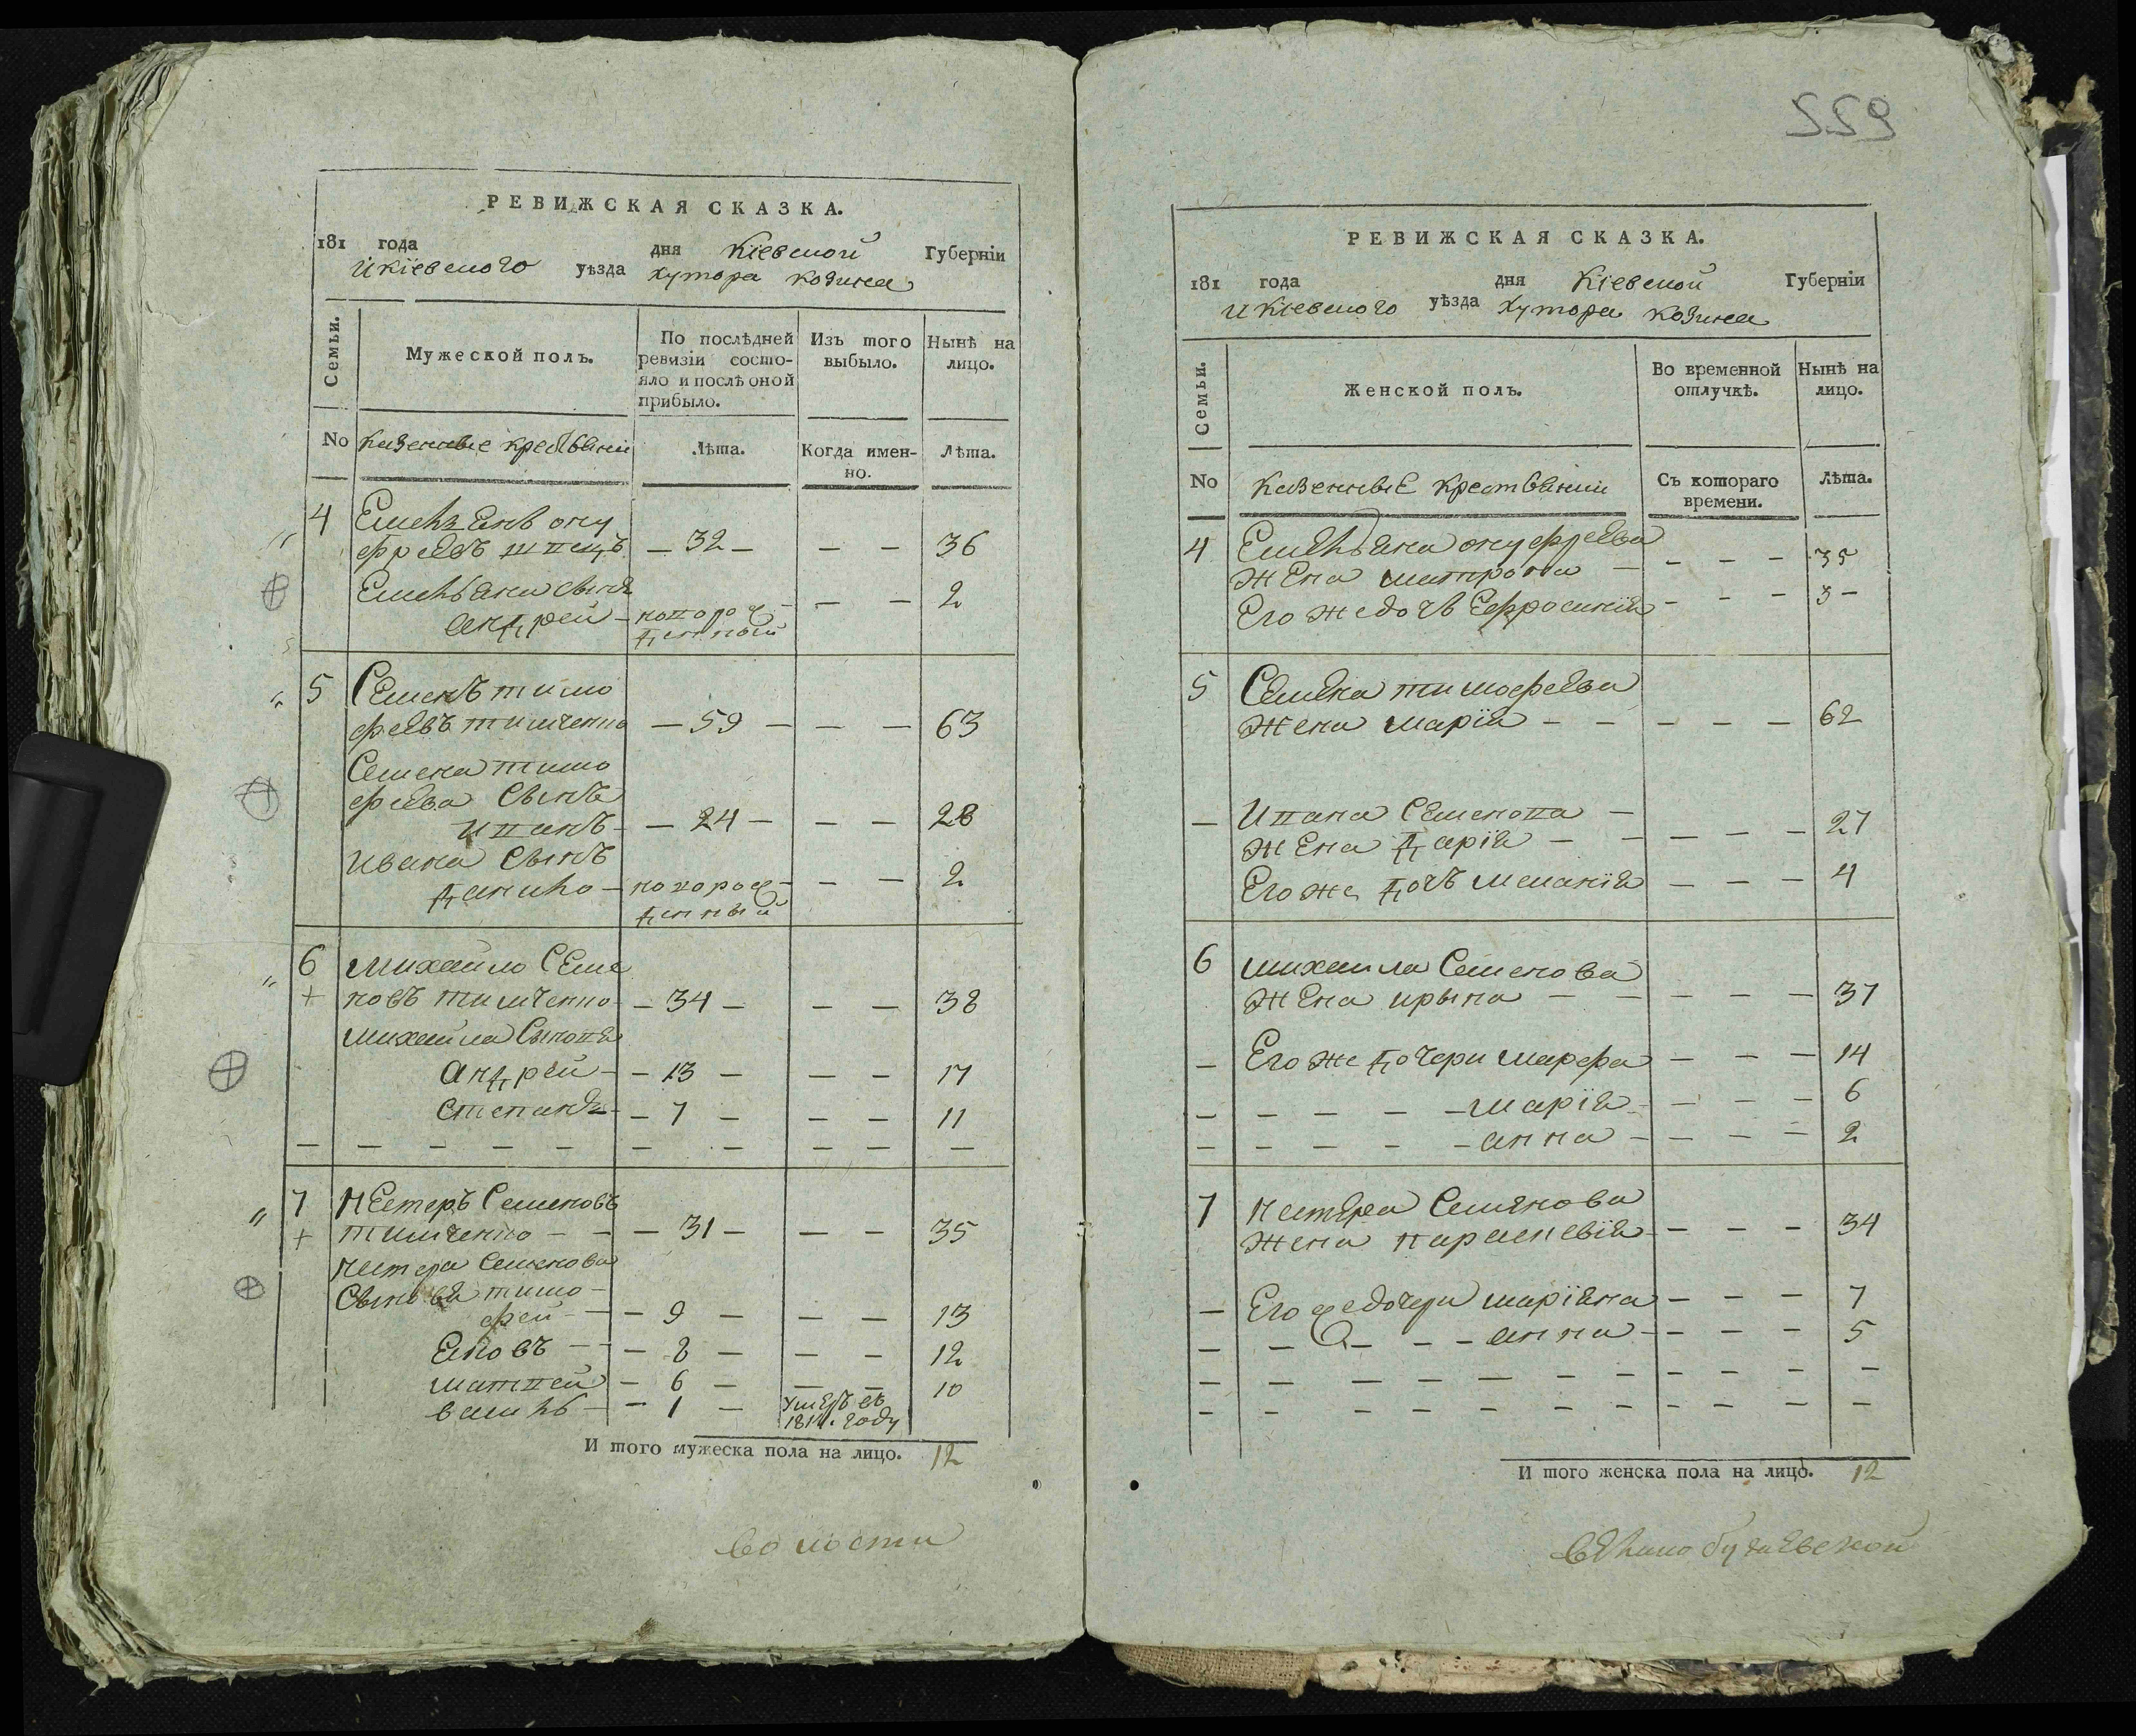 РЕВИЖСКАЯ СКАЗКА.
181 года дня Кіевской Губерніи
и Кіевского уѣзда хутора Козина
Семьи.
Мужеской полъ.
По послѣдней ревизіи состо-
яло и послѣ оной прибыло.
Изъ того выбыло.
Нынѣ на лицо.
No Казенные крестьяни
Лѣта.
Когда имен-
но.
Лѣта.
4 Емельянъ ону
фреевъ — 32 — — — 36
Емельяна сынъ
андрей — новорож
денный — — 2
5 Семенъ тимо
феевъ тимченко — 59 — — — 63
Семена тимо
феева сынъ
иванъ — 24 — — — 28
ивана сынъ
данило — новорож-
денный — — 2
6 михайло Семе
новъ тимченко — 34 — — — 38
михайла сыновя
андрей — 13 — — — 17
степанъ — 7 — — — 11
7 нестеръ Семеновъ
тимченко — — 31 — — — 35
нестера семенова
сыновя тимо-
фей — 9 — — — 13
яковъ — 8 — — — 12
матвей — 6 — — — 10
василь — 1 — умеръ въ
181 году
И того мужеска пола на лицо. 12
волости
559
РЕВИЖСКАЯ СКАЗКА.
181 года дня Кіевской Губерніи
и Кіевского уѣзда хутора Козина
Семьи.
Женской полъ.
Во временной отлучкѣ.
Нынѣ на лицо.
No Казенные крестьянии
Съ котораго времени.
Лѣта.
4 Емельяна онуфреева
жена матрона — — — — 35
Его же дочь Ефросинія — — — 3 —
5 Семена тимофеева
жена марія — — — — — 62
— ивана Семенова —
жена дарія — — — — — 27
Его же дочъ меланія — — — 4
6 михаила Семенова
жена ирына — — — — — 37
— Его же дочери марфа — — — 14
— — — — — марія — — — — 6
— — — — — анна — — — — 2
7 нестера Семенова
жена параскевія — — — 34
— Его же дочери маріяна — — — 7
— — — — — анна — — — — 5
И того женска пола на лицо. 12